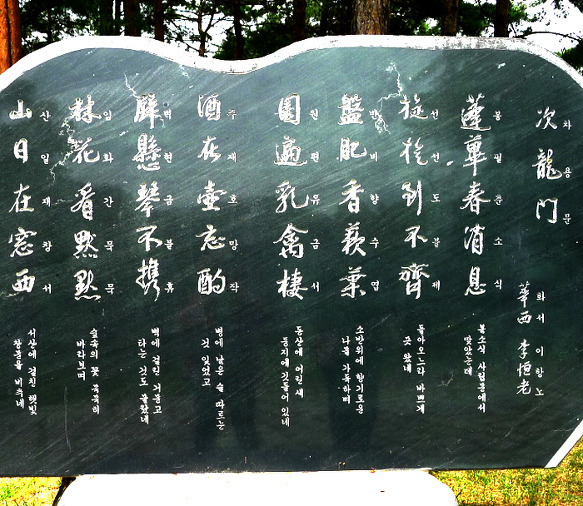 次龍門
차용문
華西 李恒老
화서 이항노
蓬蓽春消息
봉필춘소식
봄소식 사립문에서
맞았는데
旋旋到不齊
선선도불제
돌아오느라 바쁘게
왔네
盤肥香蔌葉
반비향수엽
소반위에 향기로운
나물 가득하며
園遍乳禽棲
원편유금서
동산에 어린새
둥지에 깃들어 있네
酒在壺忘酌
주재호망작
병에 남은 술 따르는
것 잊었고
壁懸琴不携
벽현금불휴
벽에 걸린 거문고
타는 것도
林花看默默
임화간묵묵
숲속의 꽃 묵묵히
바라보며
山日在窓西
산일재창서
서산에 걸친 햇빛
창문을 비추네